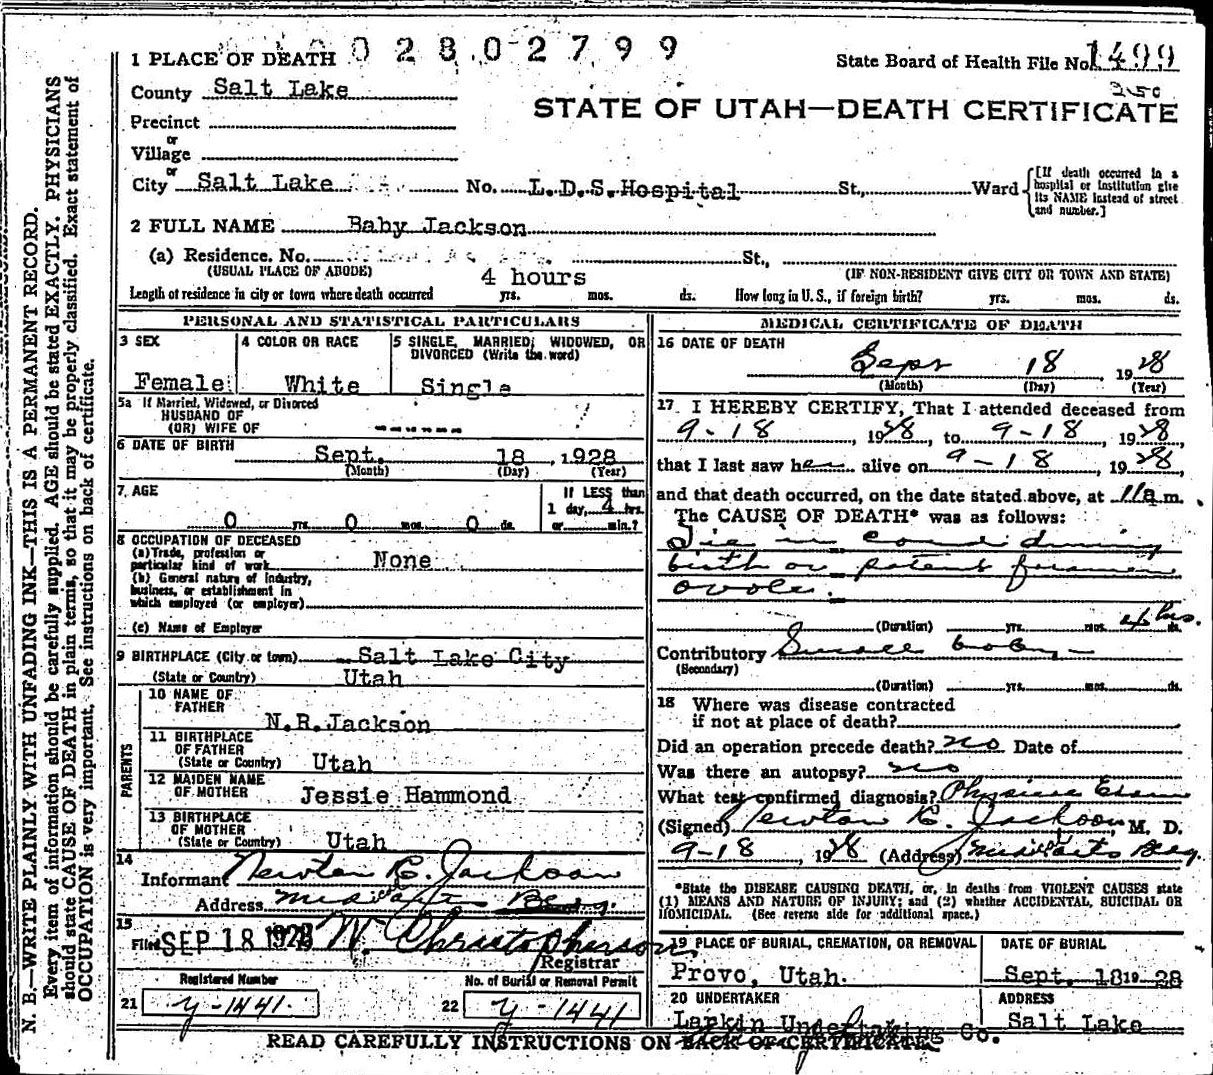 0 0 2 8 0 2 7 9 9
1 PLACE OF DEATH
State Board of Health File No. 1499
350
County Salt Lake
STATE OF UTAH—DEATH CERTIFICATE
Precinct
or
Village
or
City Salt Lake No. L.D.S. Hospital St., Ward
[If death occurred in a hospital or institution give its NAME instead of street and number.]
2 FULL NAME Baby Jackson
(a) Residence. No. St.,
(USUAL PLACE OF ABODE) (IF NON-RESIDENT GIVE CITY OR TOWN AND STATE)
4 hours
Length of residence in city or town where death occurred yrs. mos. ds. How long in U. S., if foreign birth? yrs. mos. ds.
PERSONAL AND STATISTICAL PARTICULARS
3 SEX
Female
4 COLOR OR RACE
White
5 SINGLE, MARRIED, WIDOWED, OR DIVORCED (Write the word)
Single
5a If Married, Widowed, or Divorced
HUSBAND OF
(OR) WIFE OF ------
6 DATE OF BIRTH
Sept. 18, 1928
(Month) (Day) (Year)
7 AGE
0 yrs. 0 mos. 0 ds.
If LESS than
1 day, 4 hrs.
or min.?
8 OCCUPATION OF DECEASED
(a) Trade, profession or
particular kind of work None
(b) General nature of industry,
business, or establishment in
which employed (or employer)
(c) Name of Employer
9 BIRTHPLACE (City or town) Salt Lake City
(State or Country) Utah
PARENTS
10 NAME OF
FATHER
N.R.Jackson
11 BIRTHPLACE
OF FATHER
(State or Country) Utah
12 MAIDEN NAME
OF MOTHER Jessie Hammond
13 BIRTHPLACE
OF MOTHER
(State or Country) Utah
14
Informant Newton R. Jackson
Address Medical Arts Bldg.
15
Filed SEP 18 1928 W. Christopherson
Registrar
Registered Number No. of Burial or Removal Permit
21 y-1441. 22 y-1441
MEDICAL CERTIFICATE OF DEATH
16 DATE OF DEATH
Sept 18 1928
(Month) (Day) (Year)
17 I HEREBY CERTIFY, That I attended deceased from
9-18, 1928, to 9-18, 1928,
that I last saw her alive on 9-18, 1928,
and that death occurred, on the date stated above, at 11a m.
The CAUSE OF DEATH* was as follows:
Tie in cord during
birth or patent foramen
ovale.
(Duration) yrs. mos. 4 hrs. ds.
Contributory Small baby
(Secondary)
(Duration) yrs. mos. ds.
18 Where was disease contracted
if not at place of death?
Did an operation precede death? no Date of
Was there an autopsy? no
What test confirmed diagnosis? Physical Exam
(Signed) Newton R. Jackson, M. D.
9-18, 1928 (Address) Medical Arts Bldg.
*State the DISEASE CAUSING DEATH, or, in deaths from VIOLENT CAUSES state
(1) MEANS AND NATURE OF INJURY; and (2) whether ACCIDENTAL, SUICIDAL OR
HOMICIDAL. (See reverse side for additional space.)
19 PLACE OF BURIAL, CREMATION, OR REMOVAL
Provo, Utah.
DATE OF BURIAL
Sept. 18 19 28
20 UNDERTAKER
Larkin Undertaking Co.
ADDRESS
Salt Lake
READ CAREFULLY INSTRUCTIONS ON BACK OF CERTIFICATE
N. B.—WRITE PLAINLY WITH UNFADING INK—THIS IS A PERMANENT RECORD.
Every item of information should be carefully supplied. AGE should be stated EXACTLY. PHYSICIANS
should state CAUSE OF DEATH in plain terms, so that it may be properly classified. Exact statement of
OCCUPATION is very important. See instructions on back of certificate.